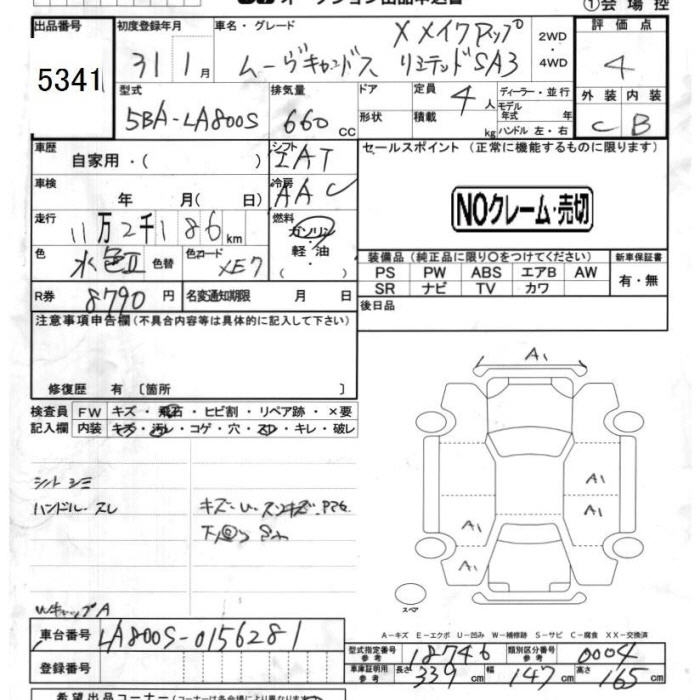 ①会場控
出品番号
5341
初度登録年月
31 1月
車名・グレード
X メイクアップ
ムーヴキャンバス リミテッドSA3
2WD
・
4WD
評価点
4
外装 内装
C B
型式
5BA-LA800S
排気量
660 cc
ドア
形状
定員
4人
積載 kg
ディーラー・並行
モデル
年式 年
ハンドル 左・右
車歴
自家用・( )
シフト
IAT
車検
年 月( 日)
冷房
AAC
走行
11万2千186km
燃料
ガソリン
軽油
( )
色
水色II 色替
色コード
XE7
R券
8790円
名変通知期限 月 日
セールスポイント (正常に機能するものに限ります)
NOクレーム・売切
装備品(純正品に限り○をつけてください)
PS PW ABS エアB AW
SR ナビ TV カワ
新車保証書
有・無
後日品
注意事項申告欄(不具合内容等は具体的に記入して下さい)
修復歴 有〔箇所 〕
検査員 FW キズ・飛石・ヒビ割・リペア跡・×要
記入欄 内装 キズ・汚レ・コゲ・穴・スレ・キレ・破レ
シート シミ
ハンドル スレ
キズ・U・スリキズ
下回り サビ
WキャップA
A1
A1
A1
A1
A1
スペア
A－キズ E－エクボ U－凹み W－補修跡 S－サビ C－腐食 XX－交換済
車台番号 LA800S-0156281
登録番号
型式指定番号 参考 18746
類別区分番号 参考 0004
車庫証明用 参考 長さ 339cm 幅 147cm 高さ 165cm
希望出品コーナー